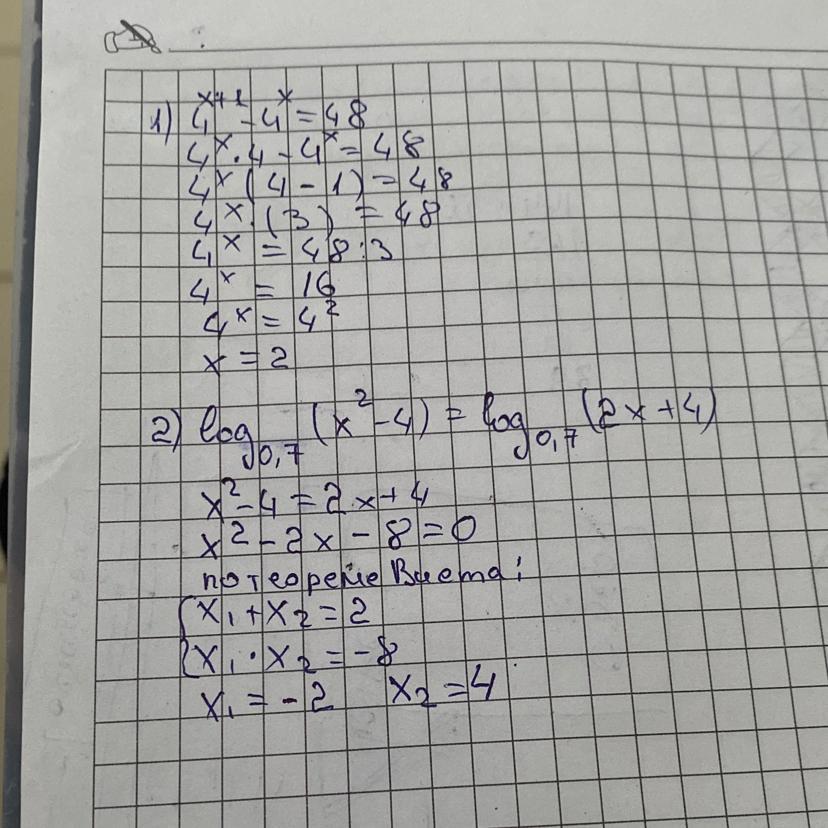 1) 4^{x+1} - 4^x = 48
4^x · 4 - 4^x = 48
4^x (4 - 1) = 48
4^x · (3) = 48
4^x = 48 : 3
4^x = 16
4^x = 4^2
x = 2
2) log_{0,7} (x^2 - 4) = log_{0,7} (2x + 4)
x^2 - 4 = 2x + 4
x^2 - 2x - 8 = 0
по теореме Виета:
{ x_1 + x_2 = 2
{ x_1 · x_2 = -8
x_1 = -2 x_2 = 4